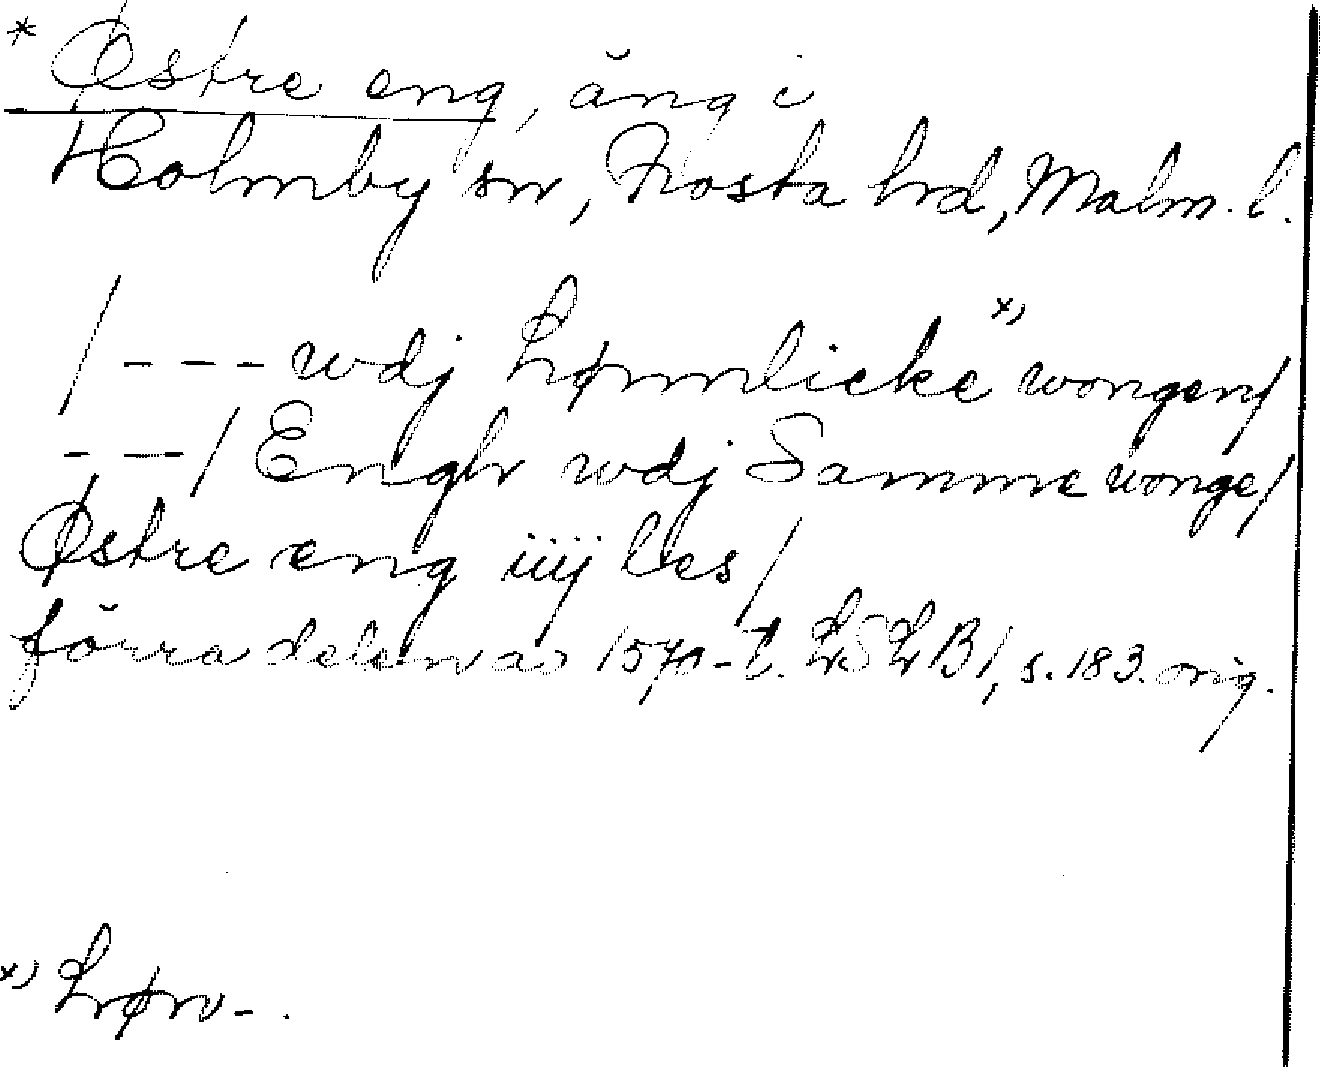 * Østre eng, äng i
Holmby sn, Frosta hrd, Malm. l.
/ - - - wdj Lrømlicke x) wongen/
- - -/ Engh wdj Samme wonge/
Østre eng iiij les/
förra delen av 1570-t. LSLB1, s. 183. orig.
x) Lrøm- .